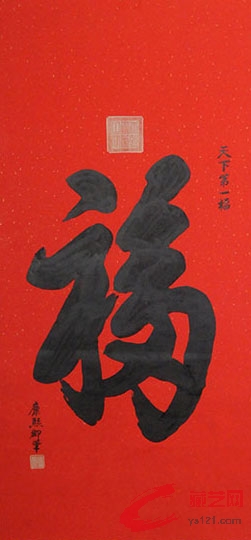 天下第一福
福
康熙御筆
藝艺网
ys121.com